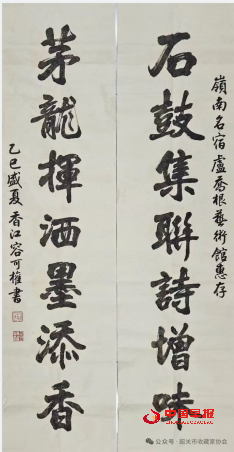 嶺南名宿盧喬根藝術館惠存
石鼓集聯詩增味
茅龍揮洒墨添香
乙巳盛夏香江容可權書
公众号·韶关市收藏家协会